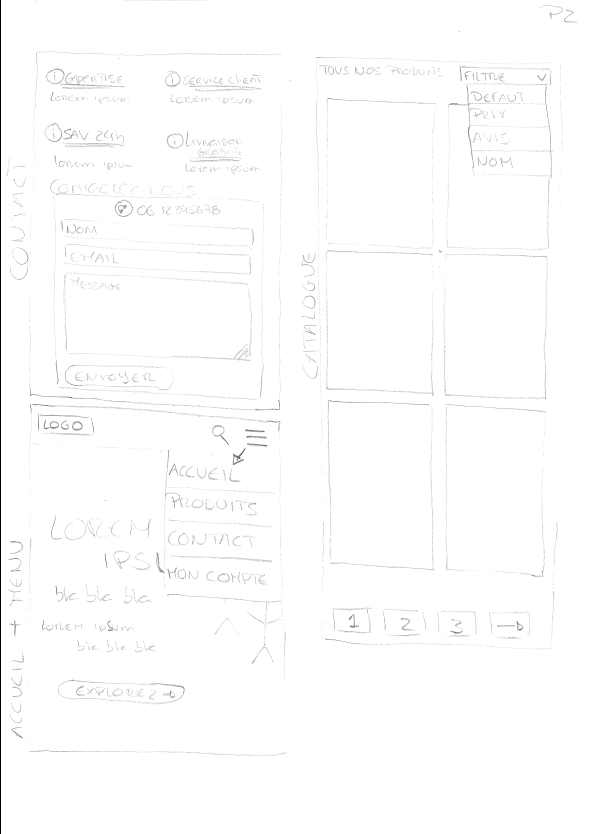 P2
CONTACT
i EXPERTISE
Lorem ipsum
i SERVICE client
Lorem ipsum
i SAV 24h
Lorem ipsum
i Livraison
GRATUITE
Lorem ipsum
CONTACTEZ NOUS
06 12345678
NOM
EMAIL
MESSAGE
ENVOYER
ACCUEIL + MENU
LOGO
ACCUEIL
PRODUITS
CONTACT
MON COMPTE
LOREM
IPSU
bla bla bla
LOREM IPSUM
bla bla bla
EXPLOREZ →
CATALOGUE
TOUS NOS PRODUITS
FILTRE
DEFAUT
PRIX
AVIS
NOM
1 2 3 →